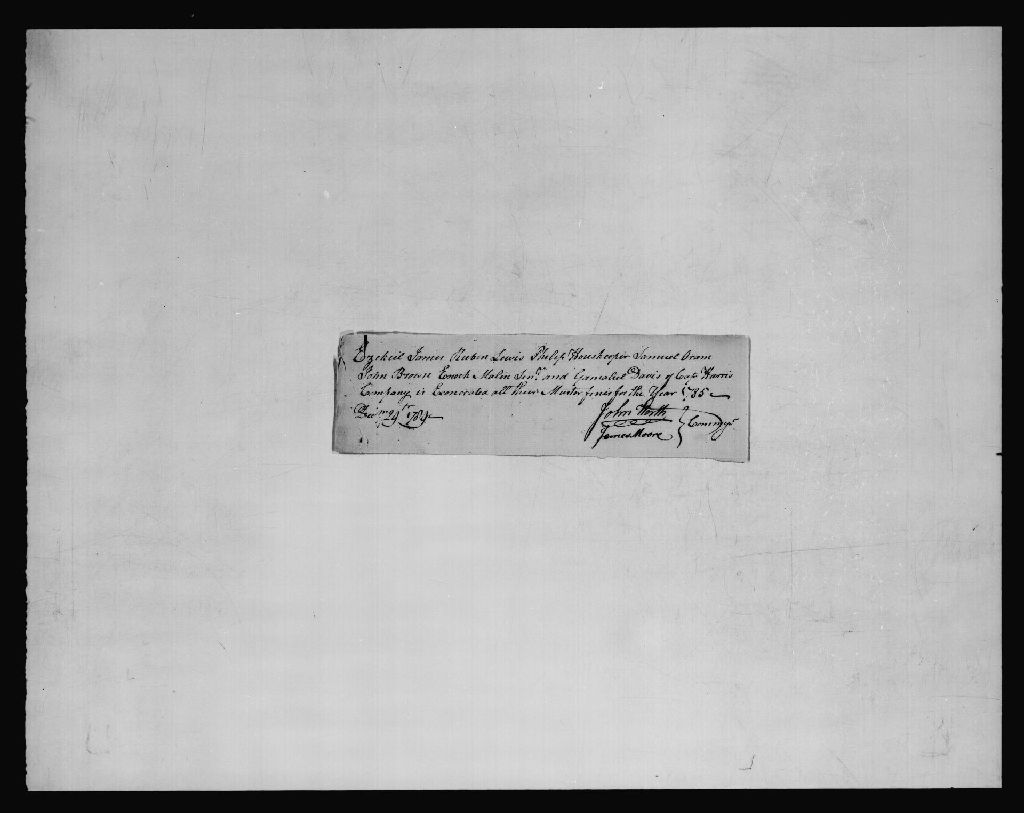 Ezekeil James Reuben Lewis Philip Houskeeper Samuel Oram
John Brown Enoch Malin Junr and Gamaliel Davis of Capt Harris
Company is Exonerated all their Muster fines for the Year 1785
24th 1784
John North
James Moore